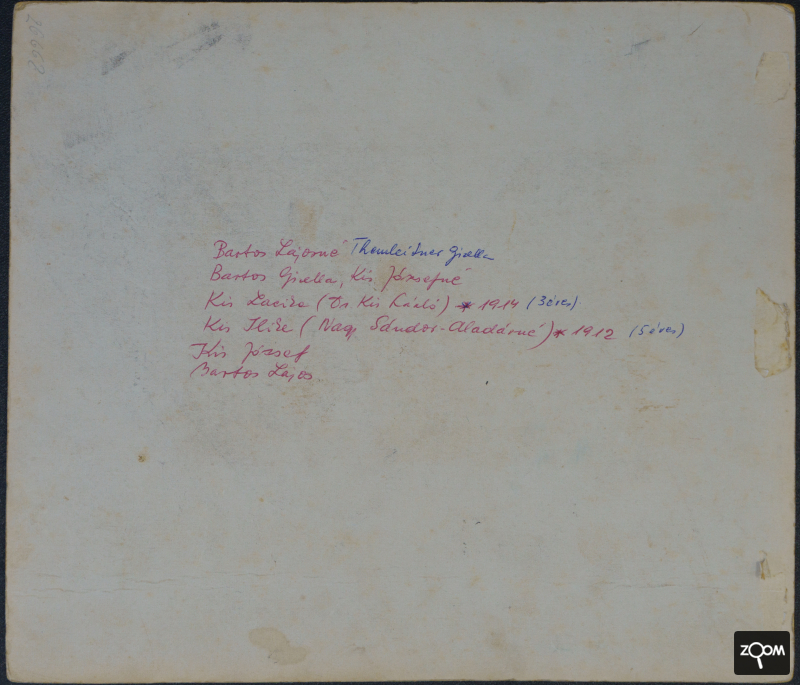 26662
Bartos Lajosné Themleitner Gizella
Bartos Gizella, Kis Józsefné
Kis Lacika (Dr. Kis László) * 1914 (3 éves)
Kis Ilike (Nagy Sándor-Aladárné) * 1912 (5 éves)
Kis József
Bartos Lajos
ZOOM